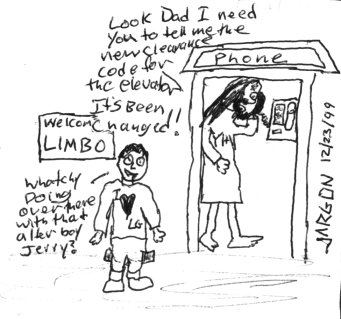 Look Dad I need
you to tell me the
new clearance
code for
the elevator
It's Been
changed!
Phone
Welcome
LIMBO
whatchy
Doing
over there
with that
alter boy
Jerry?
I
LG
JARGON 12/23/99